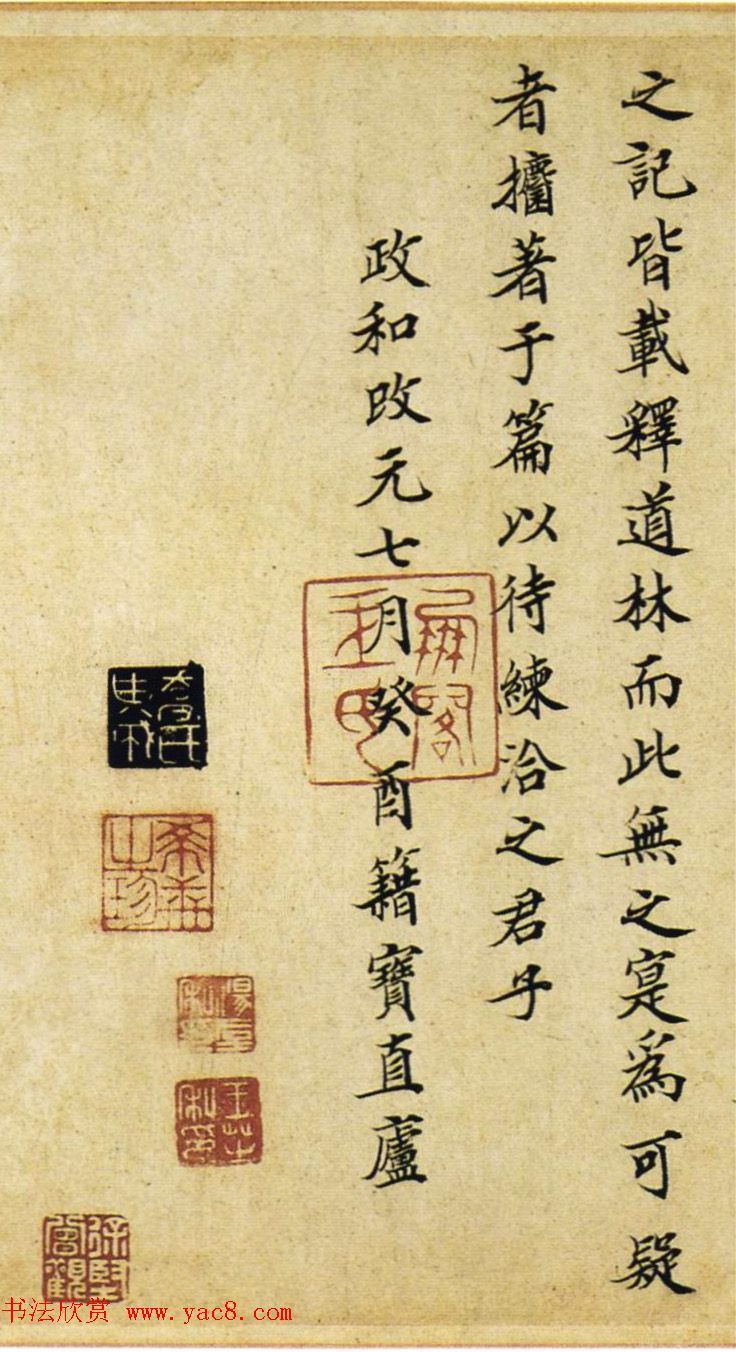 之記皆載釋道林而此無之寔為可疑
者攟著于篇以待練洽之君子
政和改元七月癸酉籍寶直廬
希世之珍
湯垕私印
王芝私印
书法欣赏 www.yac8.com